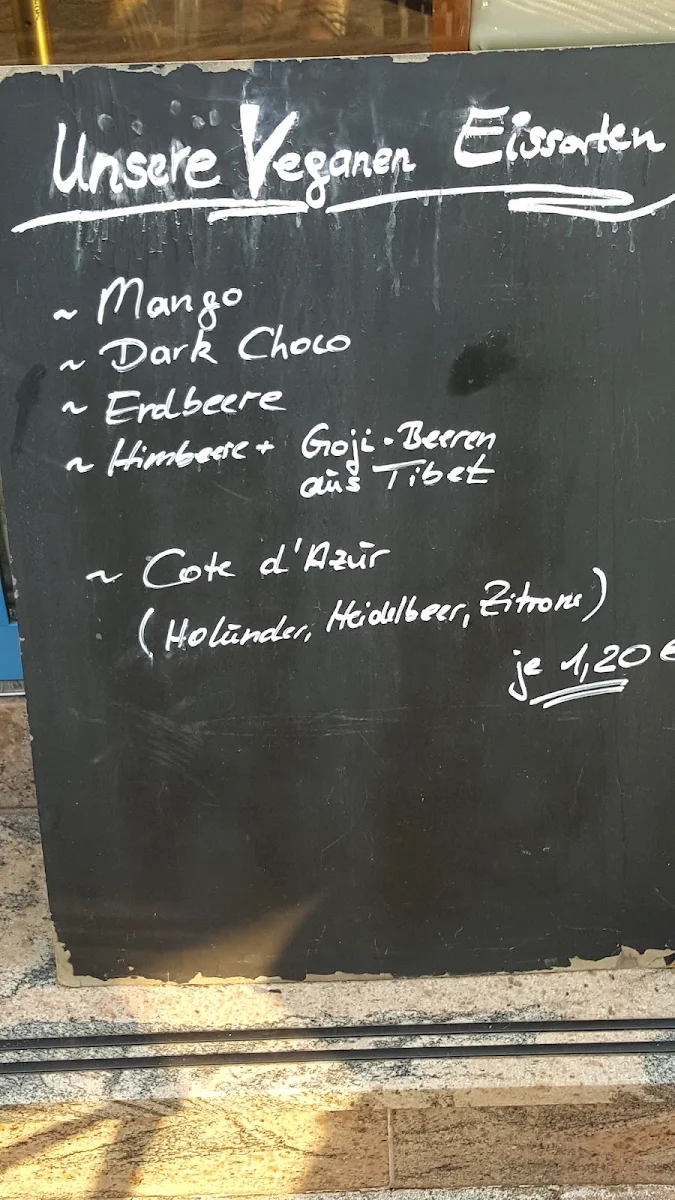 Unsere Veganen Eissorten
~ Mango
~ Dark Choco
~ Erdbeere
~ Himbeere + Goji-Beeren
aus Tibet
~ Cote d'Azur
(Holunder, Heidelbeer, Zitrone)
je 1,20 €